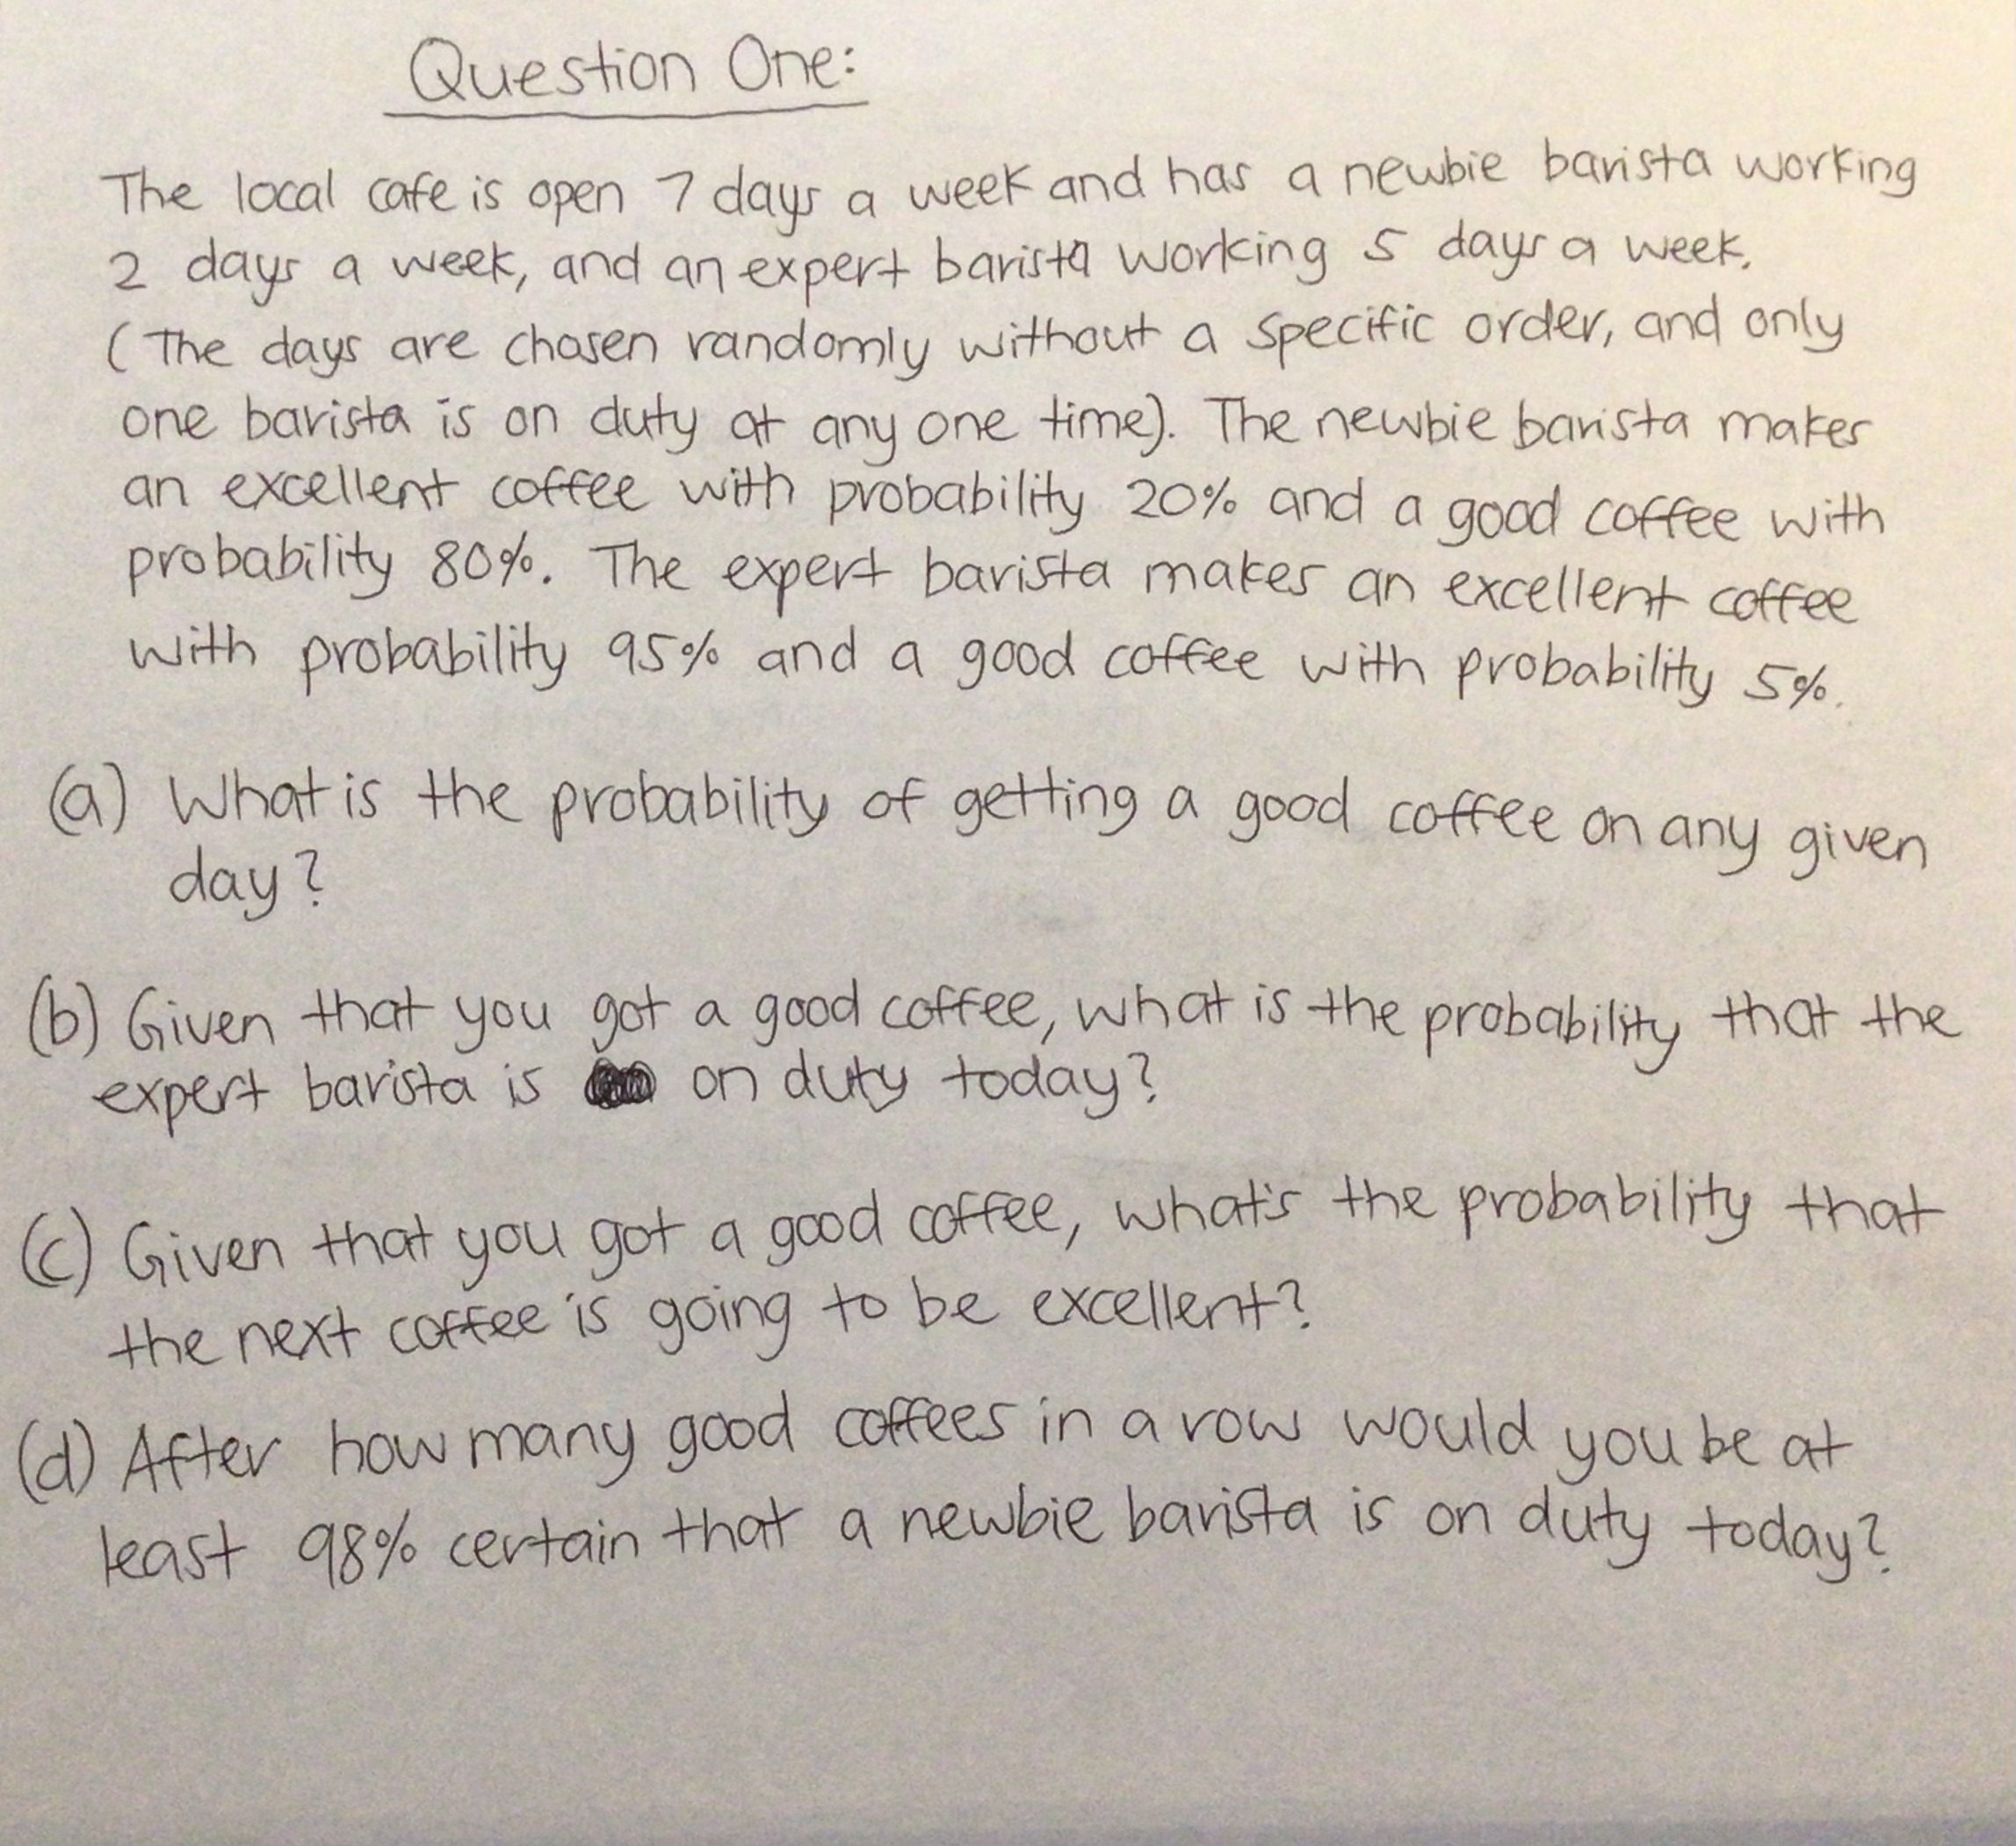 Question One:
The local cafe is open 7 days a week and has a newbie barista working
2 days a week, and an expert barista working 5 days a week.
(The days are chosen randomly without a specific order, and only
one barista is on duty at any one time). The newbie barista makes
an excellent coffee with probability 20% and a good coffee with
probability 80%. The expert barista makes an excellent coffee
with probability 95% and a good coffee with probability 5%.
(a) What is the probability of getting a good coffee on any given
day?
(b) Given that you got a good coffee, what is the probability that the
expert barista is on duty today?
(c) Given that you got a good coffee, what's the probability that
the next coffee is going to be excellent?
(d) After how many good coffees in a row would you be at
least 98% certain that a newbie barista is on duty today?